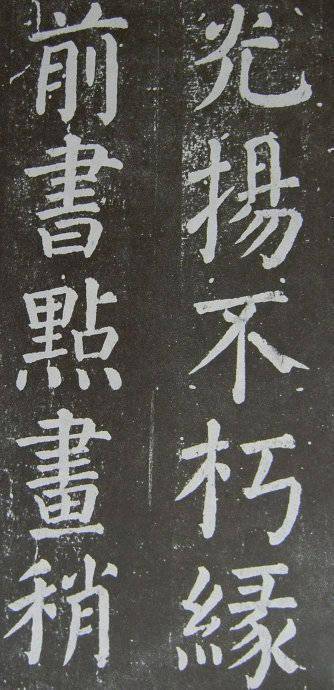 光揚不朽緣
前書點畫稍